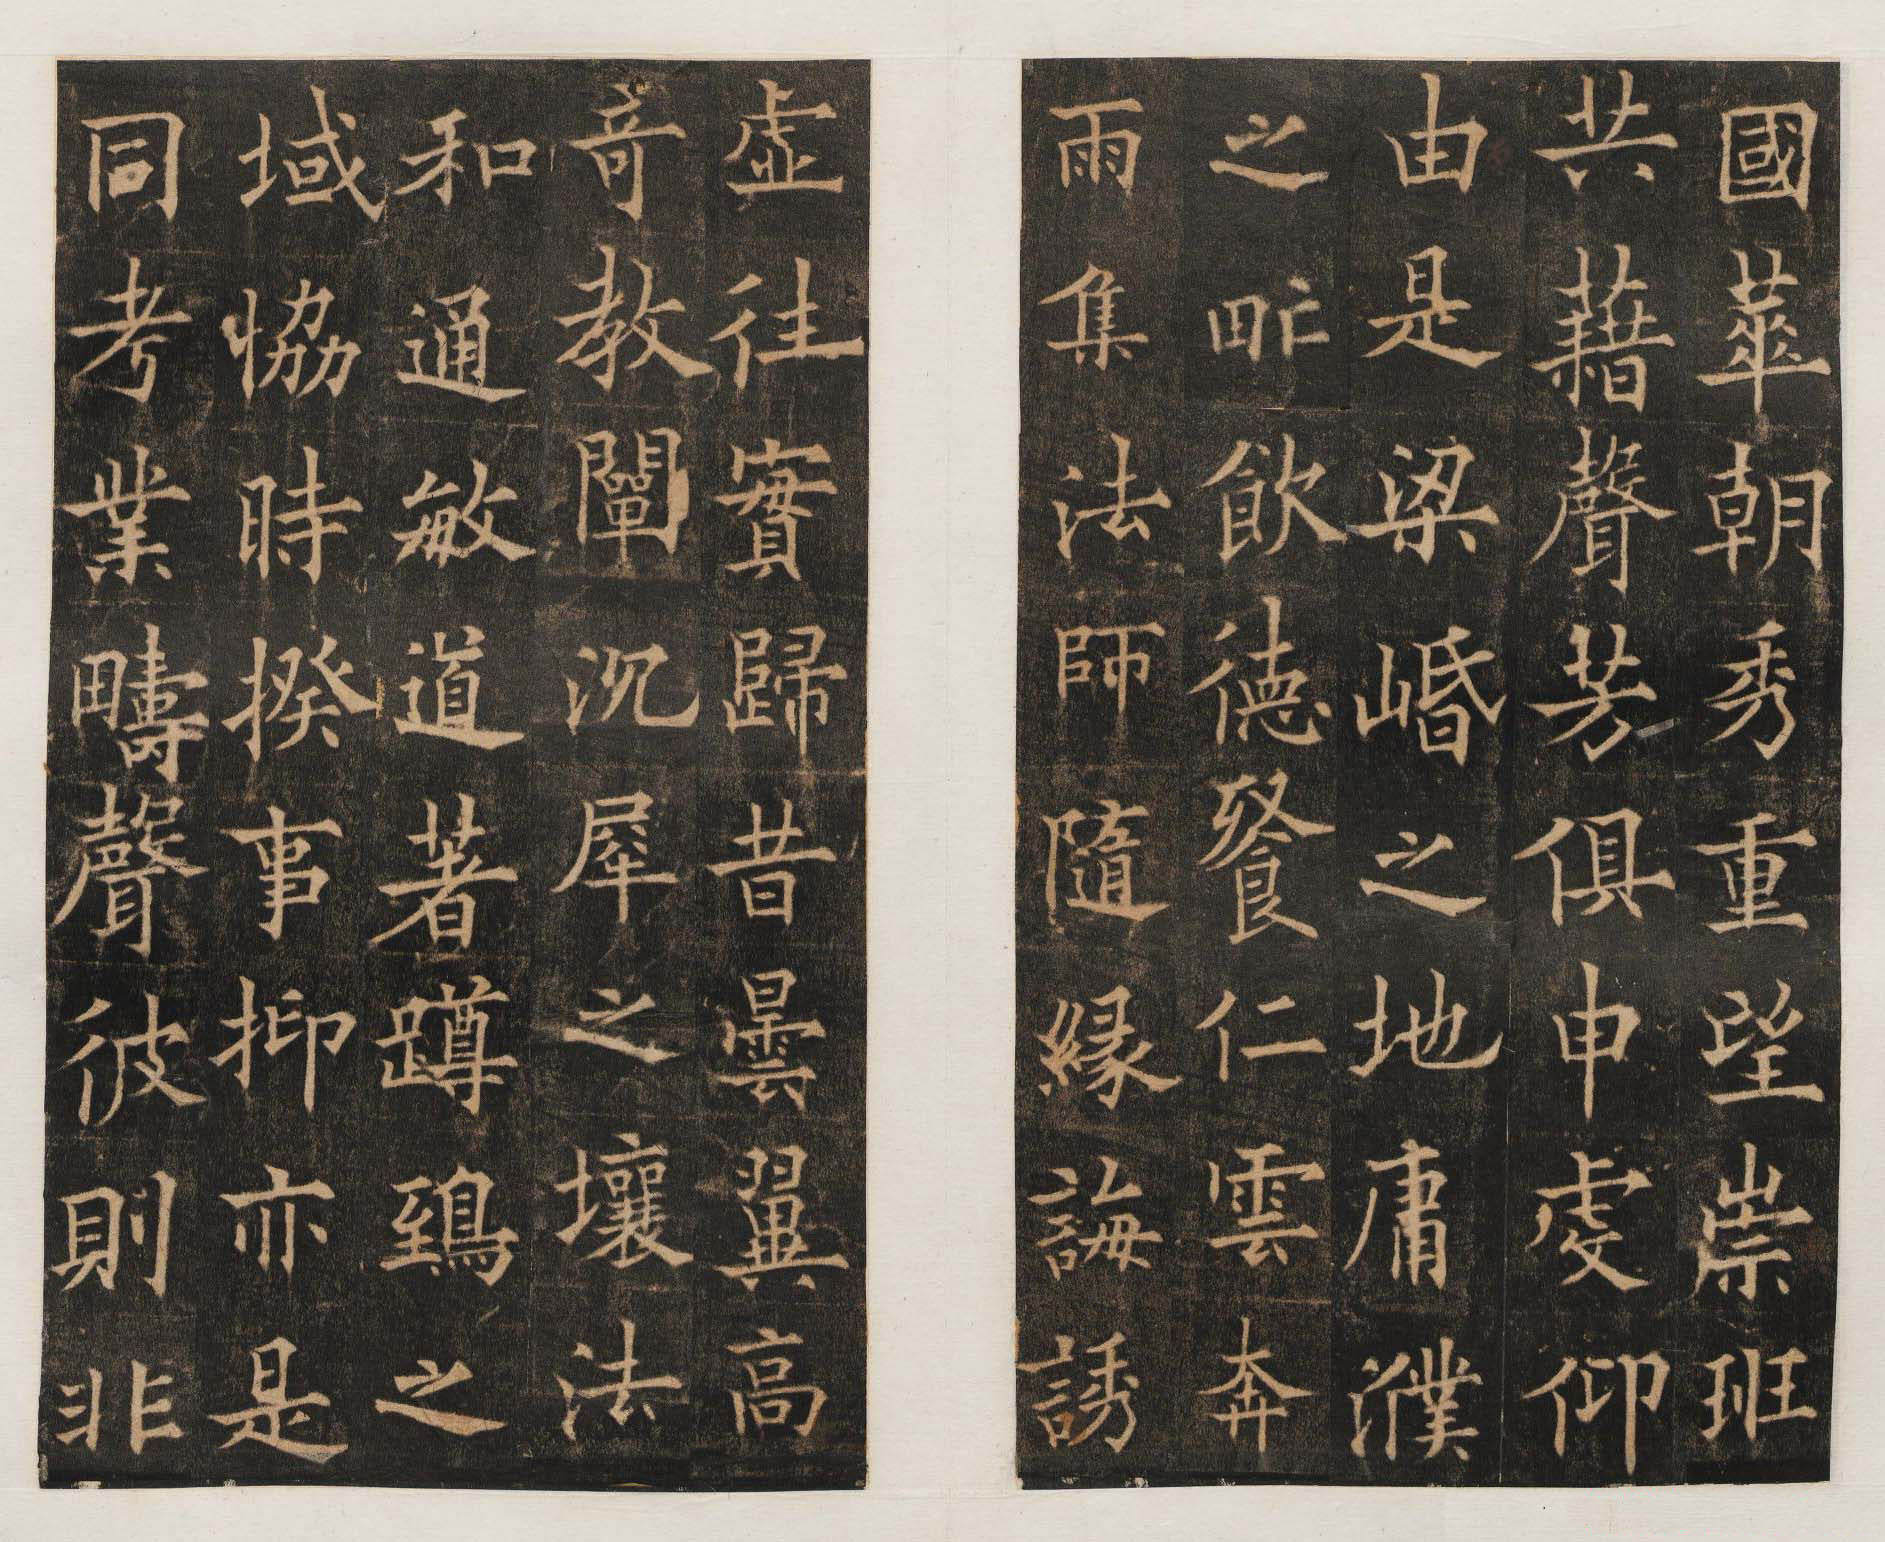 國華朝秀重望崇班
共藉聲芳俱申虔仰
由是梁崏之地庸濮
之甿飲德餐仁雲奔
雨集法師隨緣誨誘
虛往實歸昔曇翼高
奇教闡沉犀之壤法
和通敏道著蹲鵄之
域協時揆事抑亦是
同考業疇聲彼則非